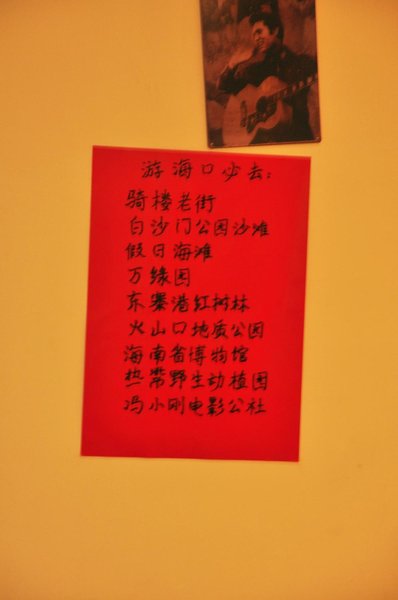 游海口必去:
骑楼老街
白沙门公园沙滩
假日海滩
万缘园
东寨港红树林
火山口地质公园
海南省博物馆
热带野生动植园
冯小刚电影公社